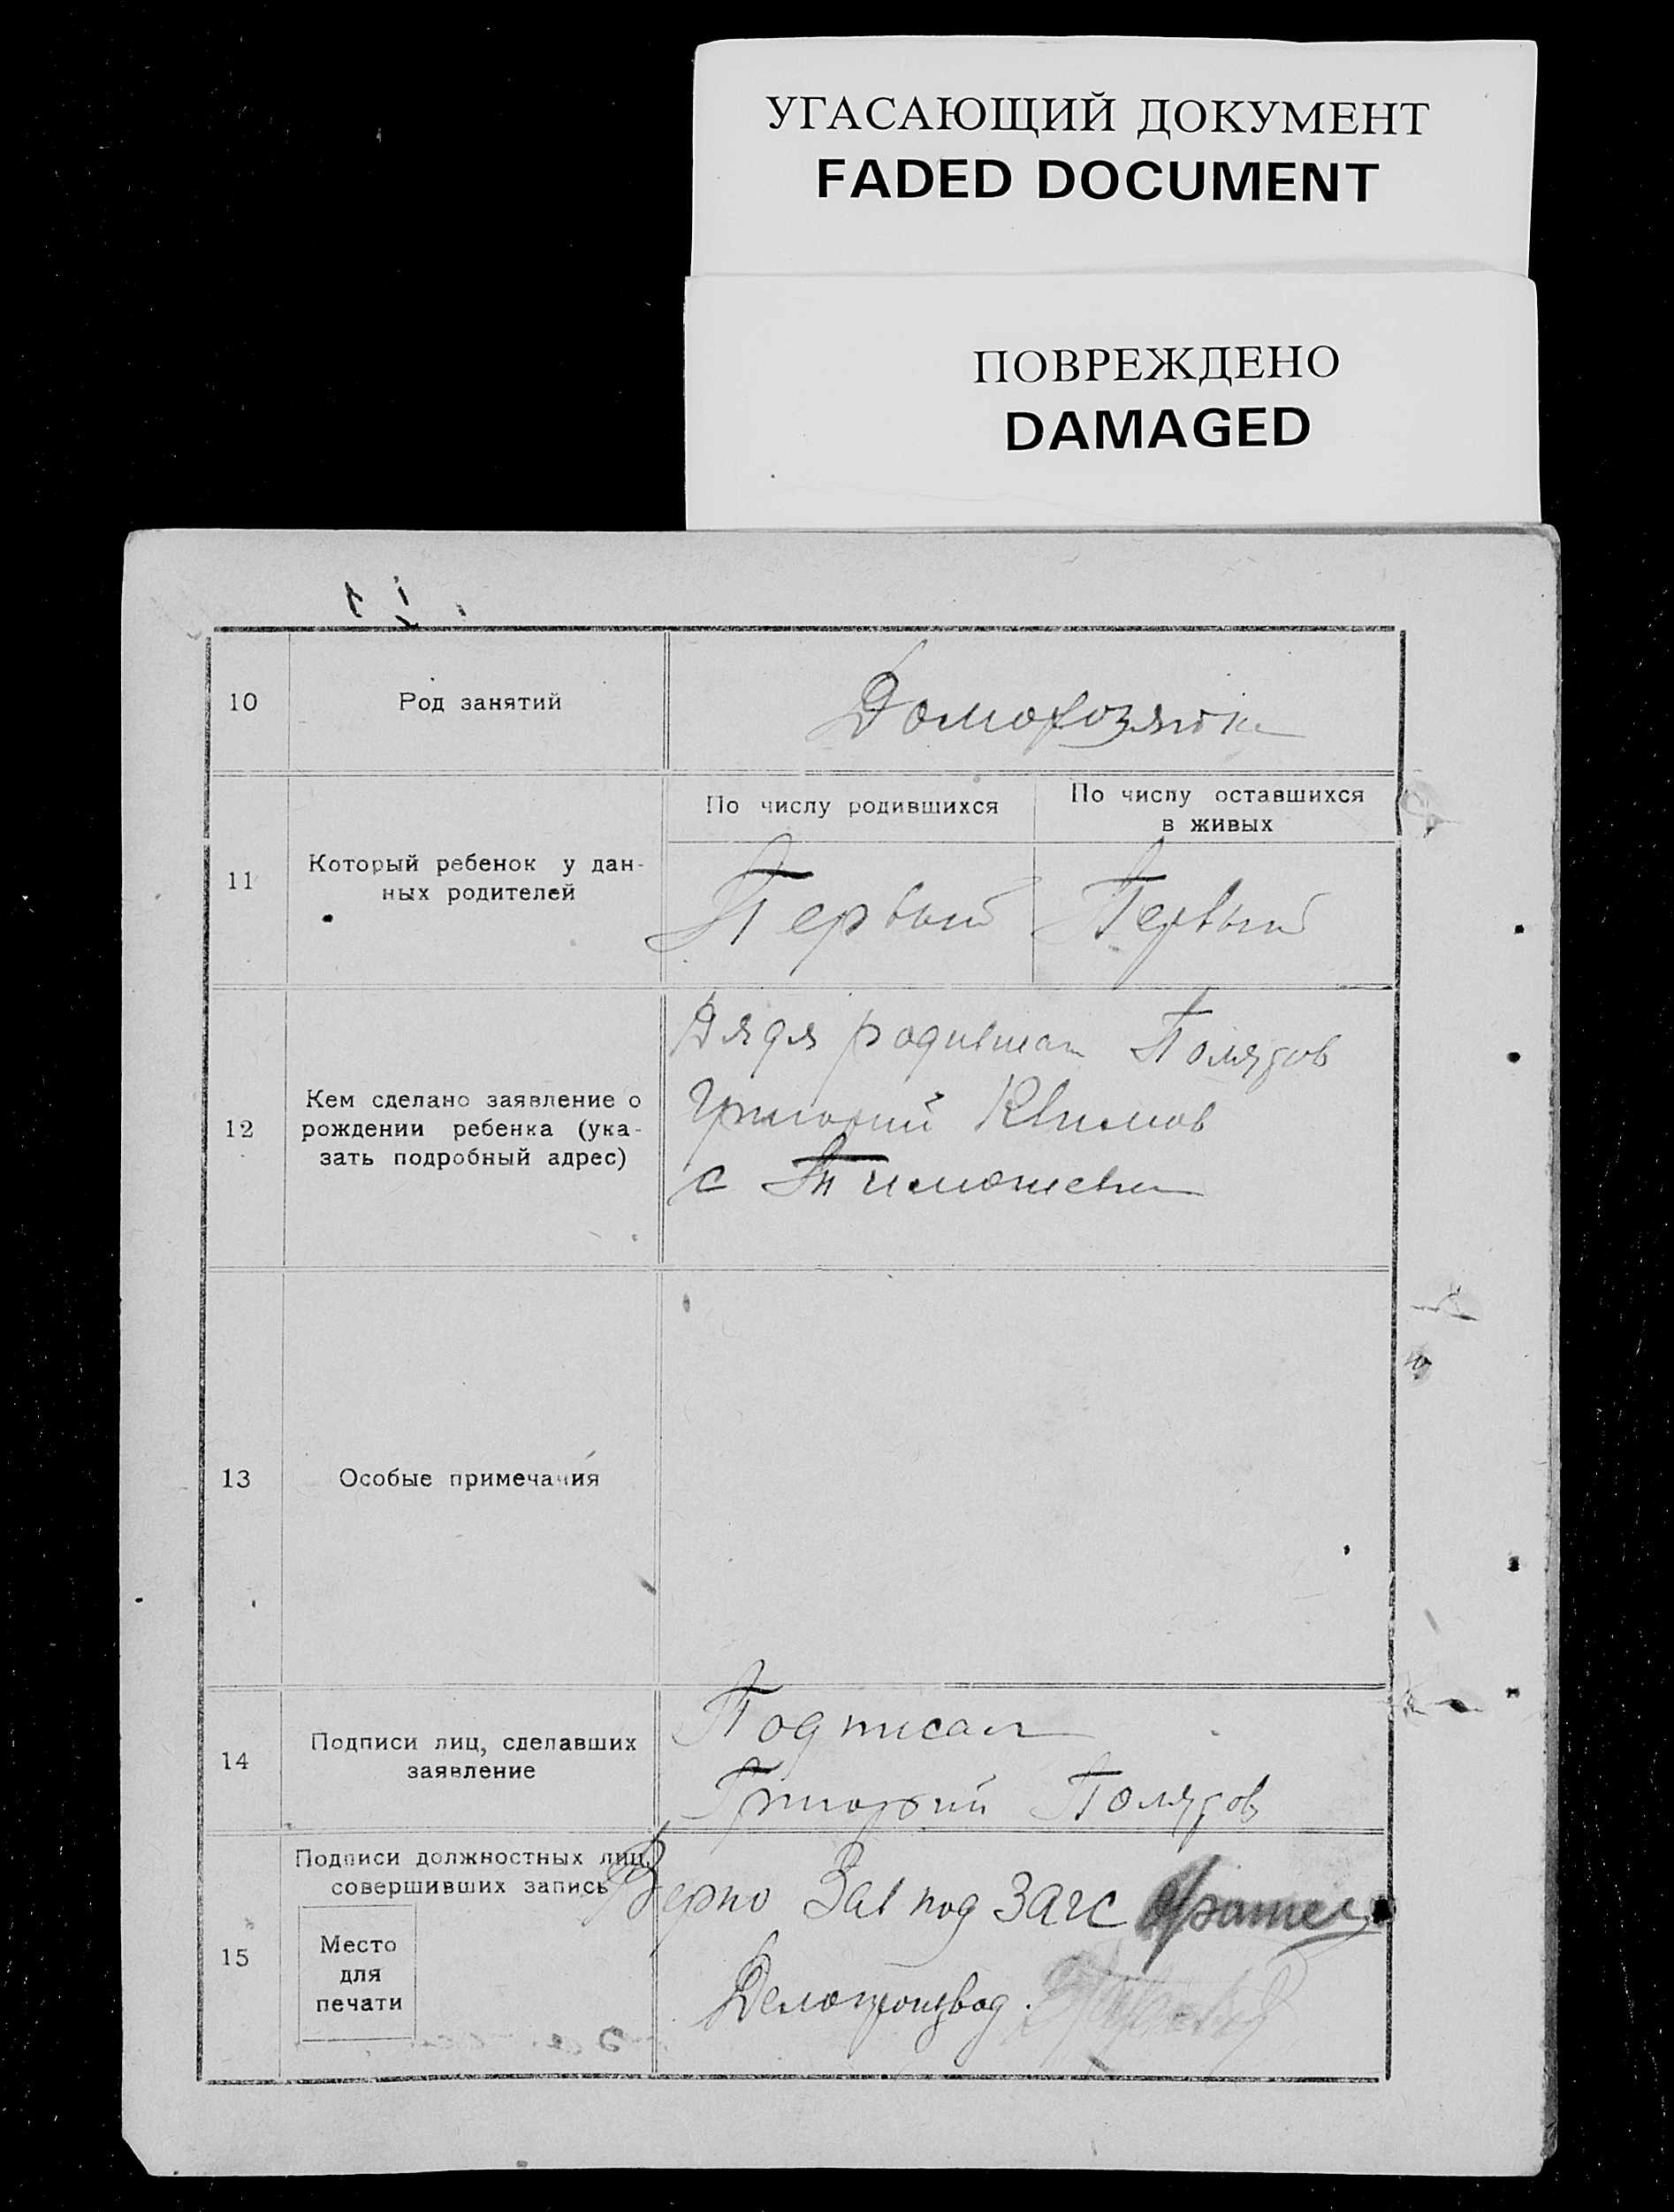 УГАСАЮЩИЙ ДОКУМЕНТ
FADED DOCUMENT
ПОВРЕЖДЕНО
DAMAGED
10 Род занятий Домохозяйка
11 Который ребенок у дан-
ных родителей
По числу родившихся
Первый
По числу оставшихся
в живых
Первый
12 Кем сделано заявление о
рождении ребенка (ука-
зать подробный адрес)
Дядя
Григорий
с
13 Особые примечания
14 Подписи лиц, сделавших
заявление
Подписал
Григорий
15 Подписи должностных лиц,
совершивших запись
Место
для
печати
Верно Зав под ЗАГС
Делопроизвод.